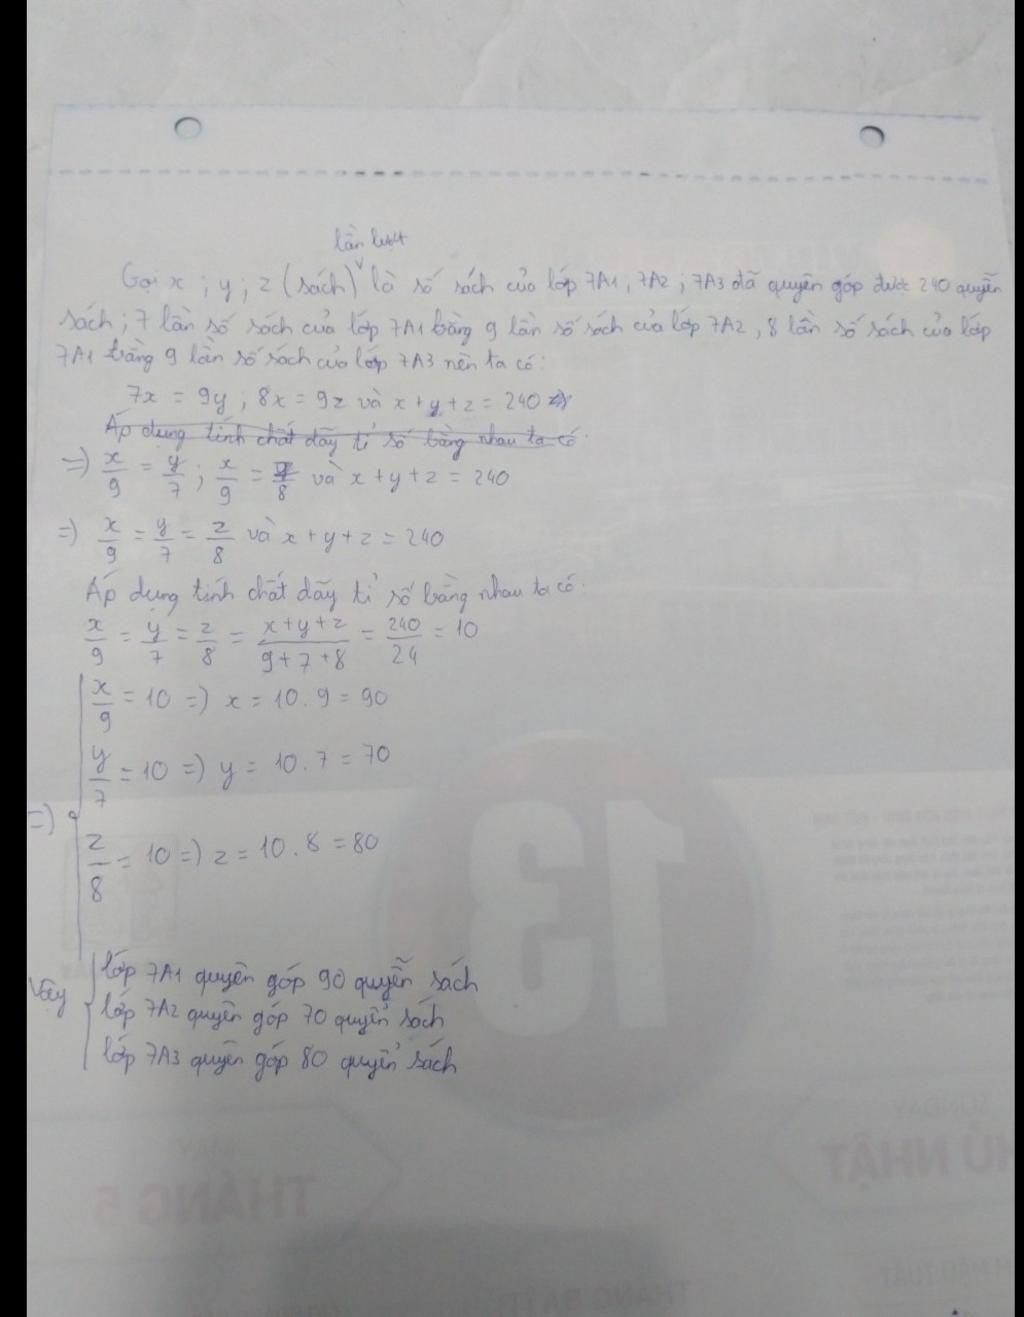 lần lượt
Gọi x ; y ; z (sách) là số sách của lớp 7A1, 7A2 ; 7A3 đã quyên góp được 240 quyển
sách ; 7 lần số sách của lớp 7A1 bằng 9 lần số sách của lớp 7A2 , 8 lần số sách của lớp
7A1 bằng 9 lần số sách của lớp 7A3 nên ta có:
7x = 9y ; 8x = 9z và x + y + z = 240
Áp dụng tính chất dãy tỉ số bằng nhau ta có:
=> x/9 = y/7 ; x/9 = z/8 và x + y + z = 240
=> x/9 = y/7 = z/8 và x + y + z = 240
Áp dụng tính chất dãy tỉ số bằng nhau ta có:
x/9 = y/7 = z/8 = x+y+z/9+7+8 = 240/24 = 10
x/9 = 10 => x = 10.9 = 90
y/7 = 10 => y = 10.7 = 70
=>
z/8 = 10 => z = 10.8 = 80
Vậy lớp 7A1 quyên góp 90 quyển sách
lớp 7A2 quyên góp 70 quyển sách
lớp 7A3 quyên góp 80 quyển sách
13
SUNDAY
CHỦ NHẬT
MAY
THÁNG 5